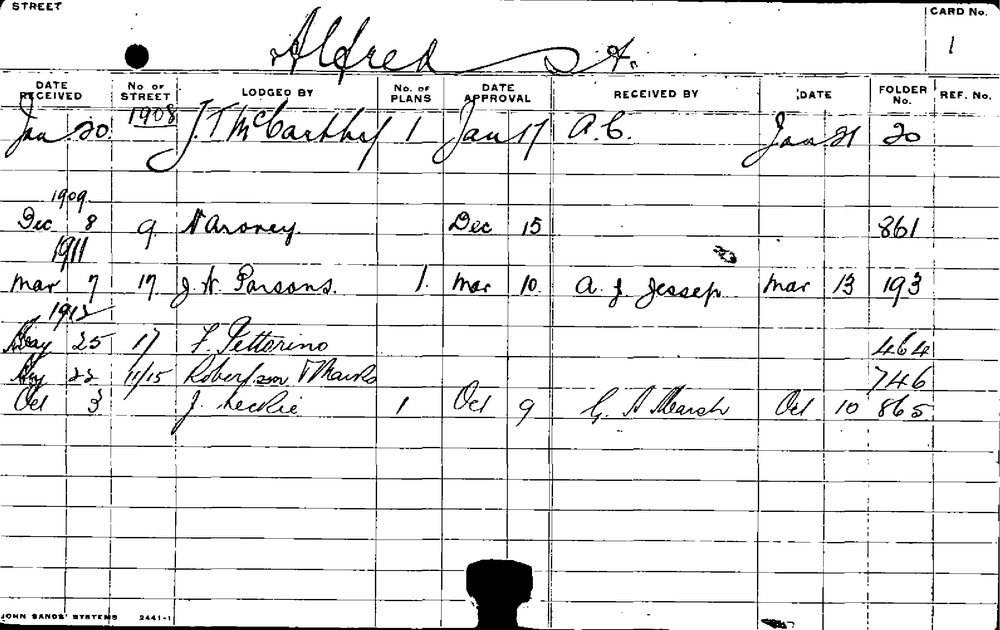 STREET
CARD No.
Alfred St.
1
DATE RECEIVED No OF STREET LODGED BY No. OF PLANS DATE APPROVAL RECEIVED BY DATE FOLDER No. REF. No.
1908
Jan 20 J. T McCarthy 1 Jan 17 A. C. Jan 21 20
1909
Dec 8 9 Maroney Dec 15 861
1911
Mar 7 17 J. W. Parsons. 1. Mar 10 A. J Jessep Mar 13 193
1912
May 25 17 F. Pettorino 464
22 11/15 Robertson & Marks 746
Oct 3 J. Leckie 1 Oct 9 G. A Marsh Oct 10 865
JOHN SANDS' SYSTEMS 2441-1